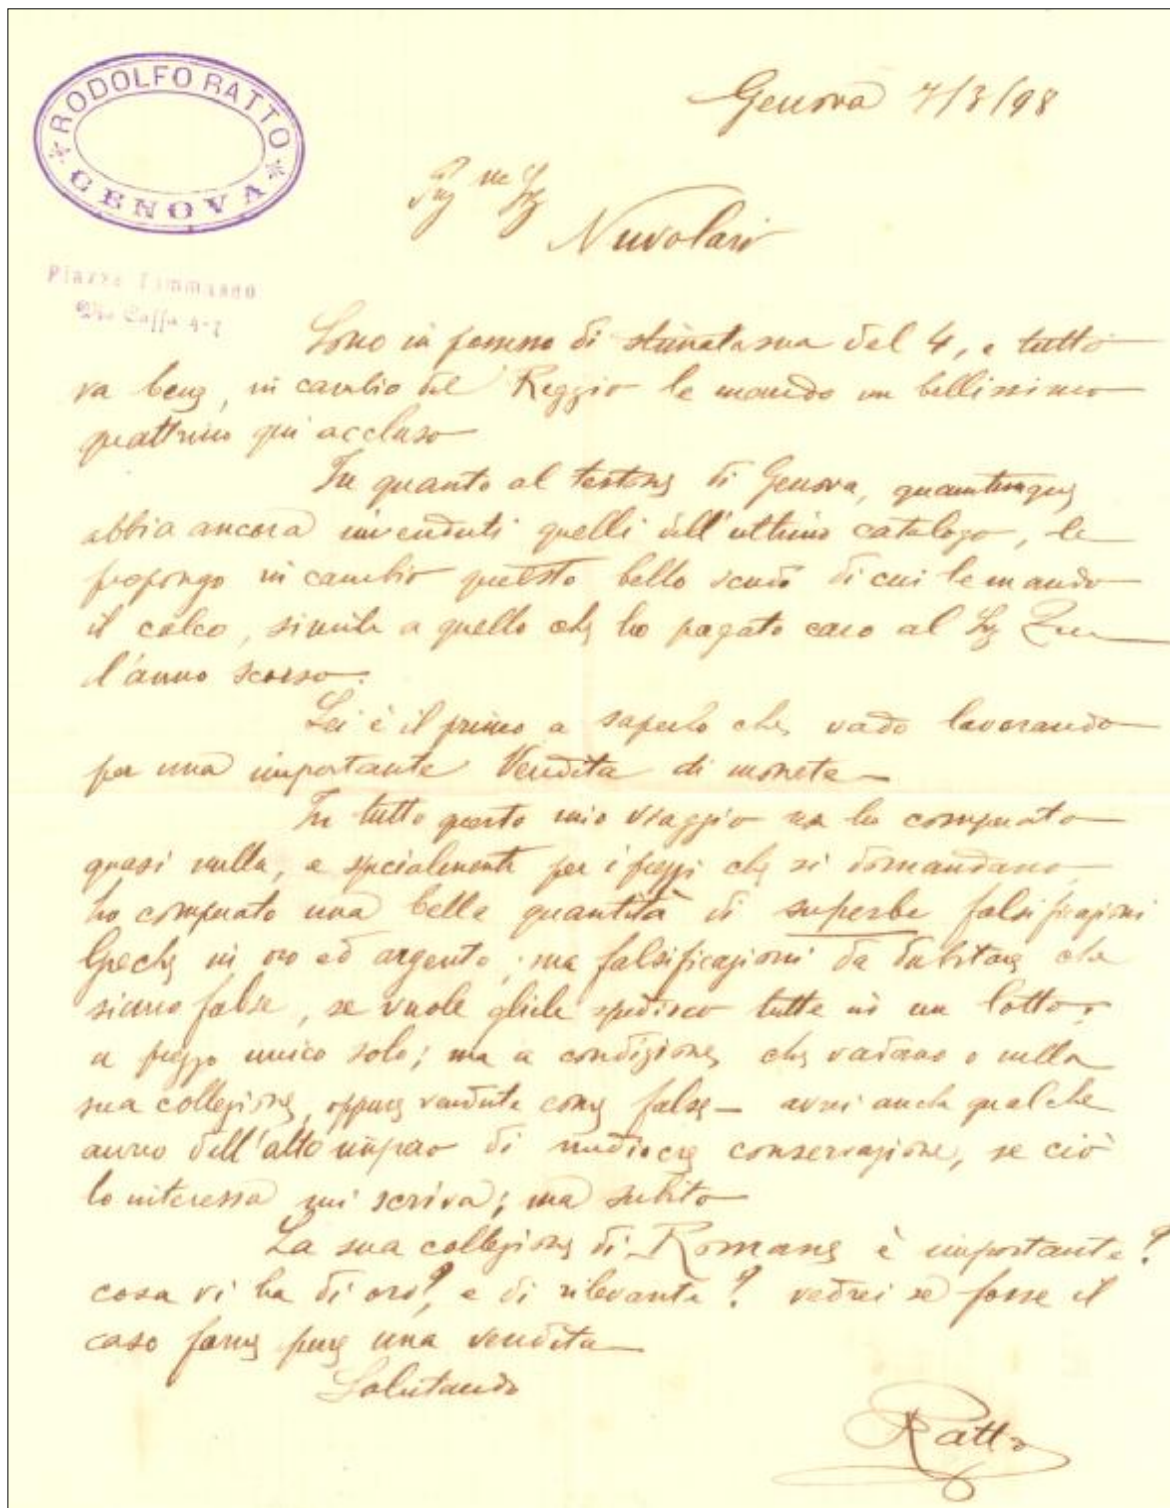 RODOLFO RATTO
GENOVA
Piazza Tommaseo
Via Caffa 4-7
Genova 7/3/98
Preg me Sig
Nuvolari
Sono in possesso di stimata sua del 4, e tutto
va bene, in cambio del Reggio le mando un bellissimo
quattrino qui accluso
In quanto al testone di Genova, quantunque
abbia ancora invenduti quelli dell'ultimo catalogo, le
propongo in cambio questo bello scudo di cui le mando
il calco, simile a quello che ho pagato caro al Sig
l'anno scorso.
Lei è il primo a saperlo che vado lavorando
per una importante Vendita di monete
In tutto questo mio viaggio non ho comprato
quasi nulla, e specialmente per i prezzi che si domandano
ho comprato una bella quantità di superbe falsificazioni
Greche in oro ed argento, ma falsificazioni da dubitare che
siano false, se vuole gliele spedisco tutte in un lotto,
a prezzo unico solo; ma a condizione che vadano o nella
sua collezione, oppure vendute come false - avrei anche qualche
aureo dell'alto impero di mediocre conservazione, se ciò
lo interessa mi scriva; ma subito
La sua collezione di Romane è importante?
cosa vi ha di oro?, e di rilevante? vedrei se fosse il
caso farne pure una vendita
Salutando
Ratto